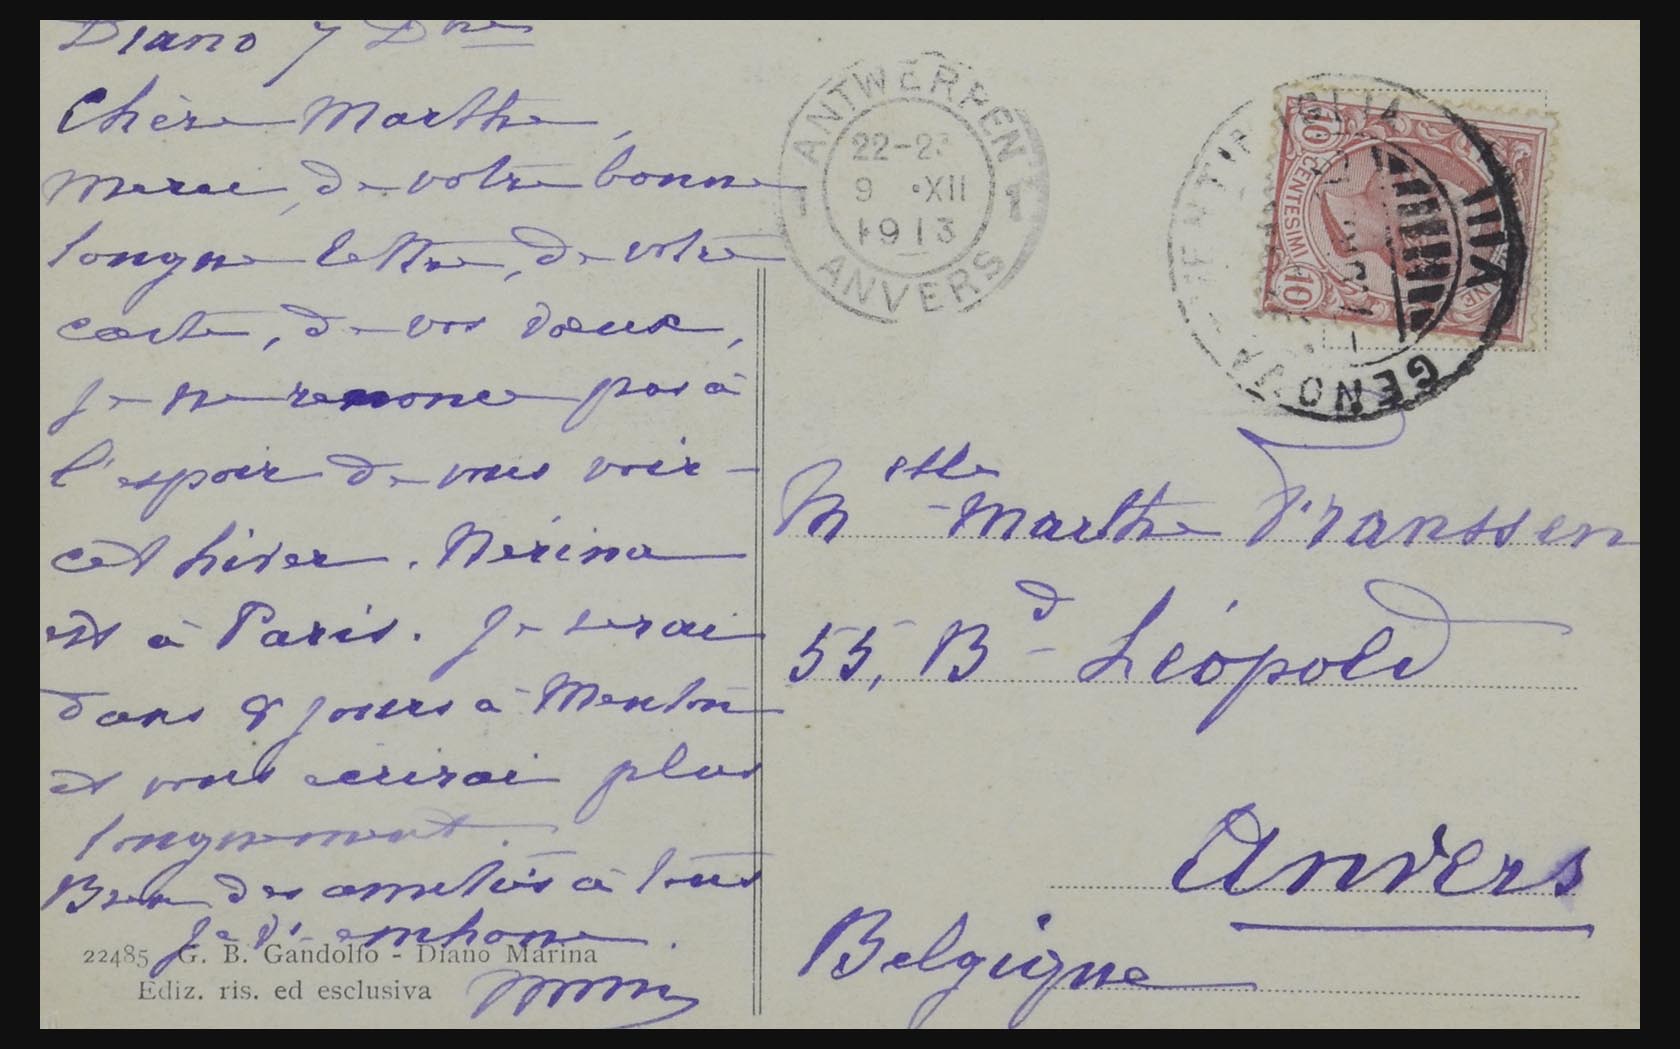 Diano 7 Dbre
Chère Marthe,
merci, de votre bonne
longue lettre, de votre
carte, de vos vœux,
je ne renonce pas à
l'espoir de vous voir
cet hiver. Nérina
est à Paris. Je serai
dans 8 jours à Menton
et vous écrirai plus
longuement.
Bien des amitiés à tous
22485 G. B. Gandolfo - Diano Marina
Ediz. ris. ed esclusiva
ANTWERPEN
22-23
9 XII
1913
1 1
ANVERS
GENOVA
VENTIMIGLIA
XIII
10 CENTESIMI 10
Melle Marthe Franssen
55, Bd Léopold
Anvers
Belgique